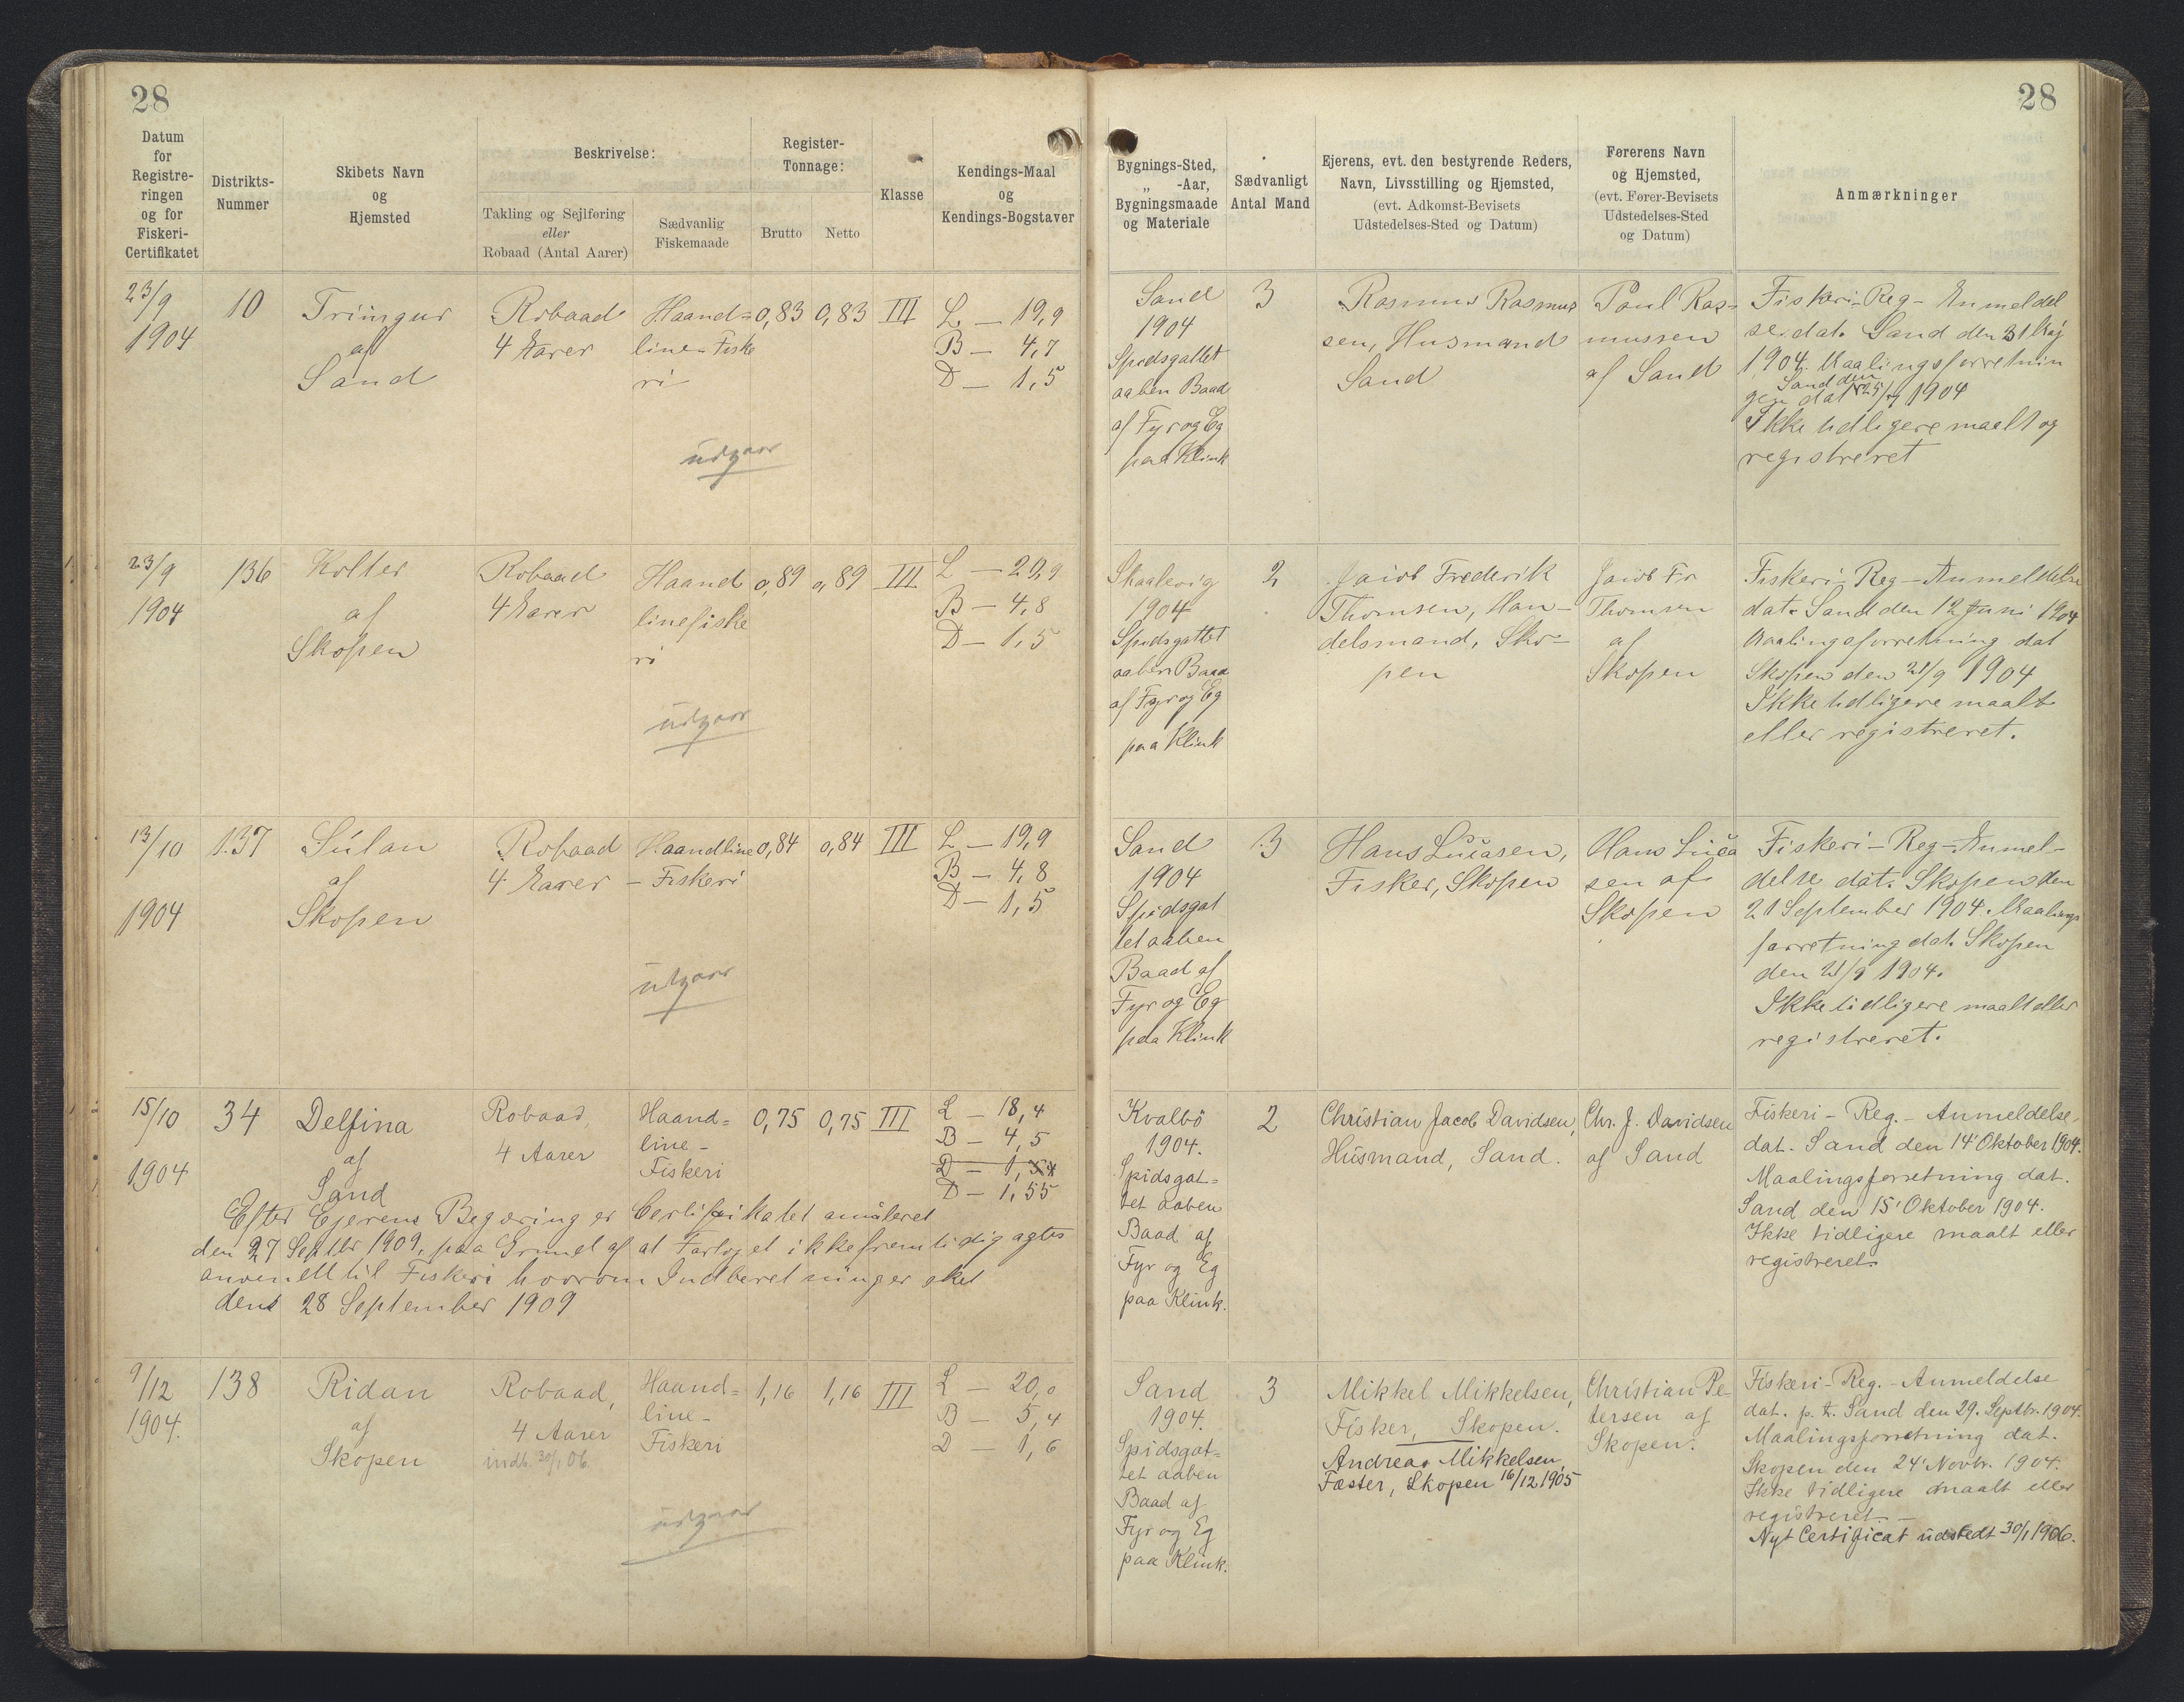 28
28
Datum
for
Registre-
ringen
og for
Fiskeri-
Certifikatet
Distrikts-
Nummer
Skibets Navn
og
Hjemsted
Beskrivelse:
Takling og Sejlføring
eller
Robaad (Antal Aarer)
Sædvanlig
Fiskemaade
Register-
Tonnage:
Brutto
Netto
Klasse
Kendings-Maal
og
Kendings-Bogstaver
Bygnings-Sted,
„ -Aar,
Bygningsmaade
og Materiale
Sædvanligt
Antal Mand
Ejerens, evt. den bestyrende Reders,
Navn, Livsstilling og Hjemsted,
(evt. Adkomst-Bevisets
Udstedelses-Sted og Datum)
Førerens Navn
og Hjemsted,
(evt. Fører-Bevisets
Udstedelses-Sted
og Datum)
Anmærkninger
23/9
1904
10
Triúgur
af
Sand
Robaad
4 Aarer
Haand=
line-Fiske
ri
0,83
0,83
III
L. — 19,9
B — 4,7
D — 1,5
udgaar
Sand
1904
Spidsgattet
aaben Baad
af Fyr og Eg
paa Klink
3
Rasmus Rasmus
sen, Husmand
Sand
Poul Ras-
mussen
af Sand
Fiskeri-Reg-Anmeldel
se dat. Sand den 31 Maj
1904. Maalingsforretnin
Sand den
gen dat 25/7 1904
Ikke tidligere maalt og
registreret
23/9
1904
136
Kolter
af
Skopen
Robaad
4 Aarer
Haand
linefiske
ri
0,89
0,89
III
L — 20,9
B — 4,8
D — 1,5
udgaar
Skaalevig
1904
Spidsgattet
aaben Baad
af Fyr og Eg
paa Klink
2
Jacob Frederik
Thomsen, Han-
delsmand, Sko-
pen
Jacob Fr
Thomsen
af
Skopen
Fiskeri-Reg-Anmeldelse
dat. Sand den 12 Juni 1904
Maalingsforretning dat
Skopen den 21/9 1904
Ikke tidligere maalt
eller registreret.
13/10
1904
137
Súlan
af
Skopen
Robaad
4 Aarer
Haandline
- Fiskeri
0,84
0,84
III
L — 19,9
B — 4,8
D — 1,5
udgaar
Sand
1904
Spidsgat
tet aaben
Baad af
Fyr og Eg
paa Klink
3
Hans Lucasen,
Fisker, Skopen
Hans Luca
sen af
Skopen
Fiskeri-Reg-Anmel-
delse dat. Skopen den
21 September 1904. Maalings
forretning dat. Skopen
den 21/9 1904.
Ikke tidligere maalt eller
registreret.
15/10
1904
34
Delfina
af
Sand
Robaad,
4 Aarer
Haand=
line-
Fiskeri
0,75
0,75
III
L — 18,4
B — 4,5
D — 1,5
D — 1,55
Efter Ejerens Begæring er Certifikatet anuleret
den 27 Septbr 1909, paa Grund af at Fartøjet ikke fremtidig agtes
anvendt til Fiskeri hvorom Indberetning er sket
den 28 September 1909
Kvalbö
1904.
Spidsgat=
tet aaben
Baad af
Fyr og Eg
paa Klink.
2
Christian Jacob Davidsen,
Husmand, Sand.
Chr. J. Davidsen
af Sand
Fiskeri-Reg.-Anmeldelse,
dat. Sand den 14' Oktober 1904.
Maalingsforretning dat.
Sand den 15' Oktober 1904.
Ikke tidligere maalt eller
registreret.
9/12
1904.
138
Ridan
af
Skopen
Robaad,
4 Aarer
indb. 30/1 06.
Haand=
line-
Fiskeri
1,16
1,16
III
L — 20,0
B — 5,4
D — 1,6
udgaar
Sand
1904.
Spidsgat=
tet aaben
Baad af
Fyr og Eg
paa Klink.
3
Mikkel Mikkelsen,
Fisker, Skopen.
Andreas Mikkelsen,
Fæster, Skopen 16/12 1905
Christian Pe-
tersen af
Skopen.
Fiskeri-Reg.-Anmeldelse
dat. p. t. Sand den 29. Septbr. 1904.
Maalingsforretning dat.
Skopen den 24' Novbr. 1904.
Ikke tidligere maalt eller
registreret. -
Nyt Certificat udstedt 30/1 1906.